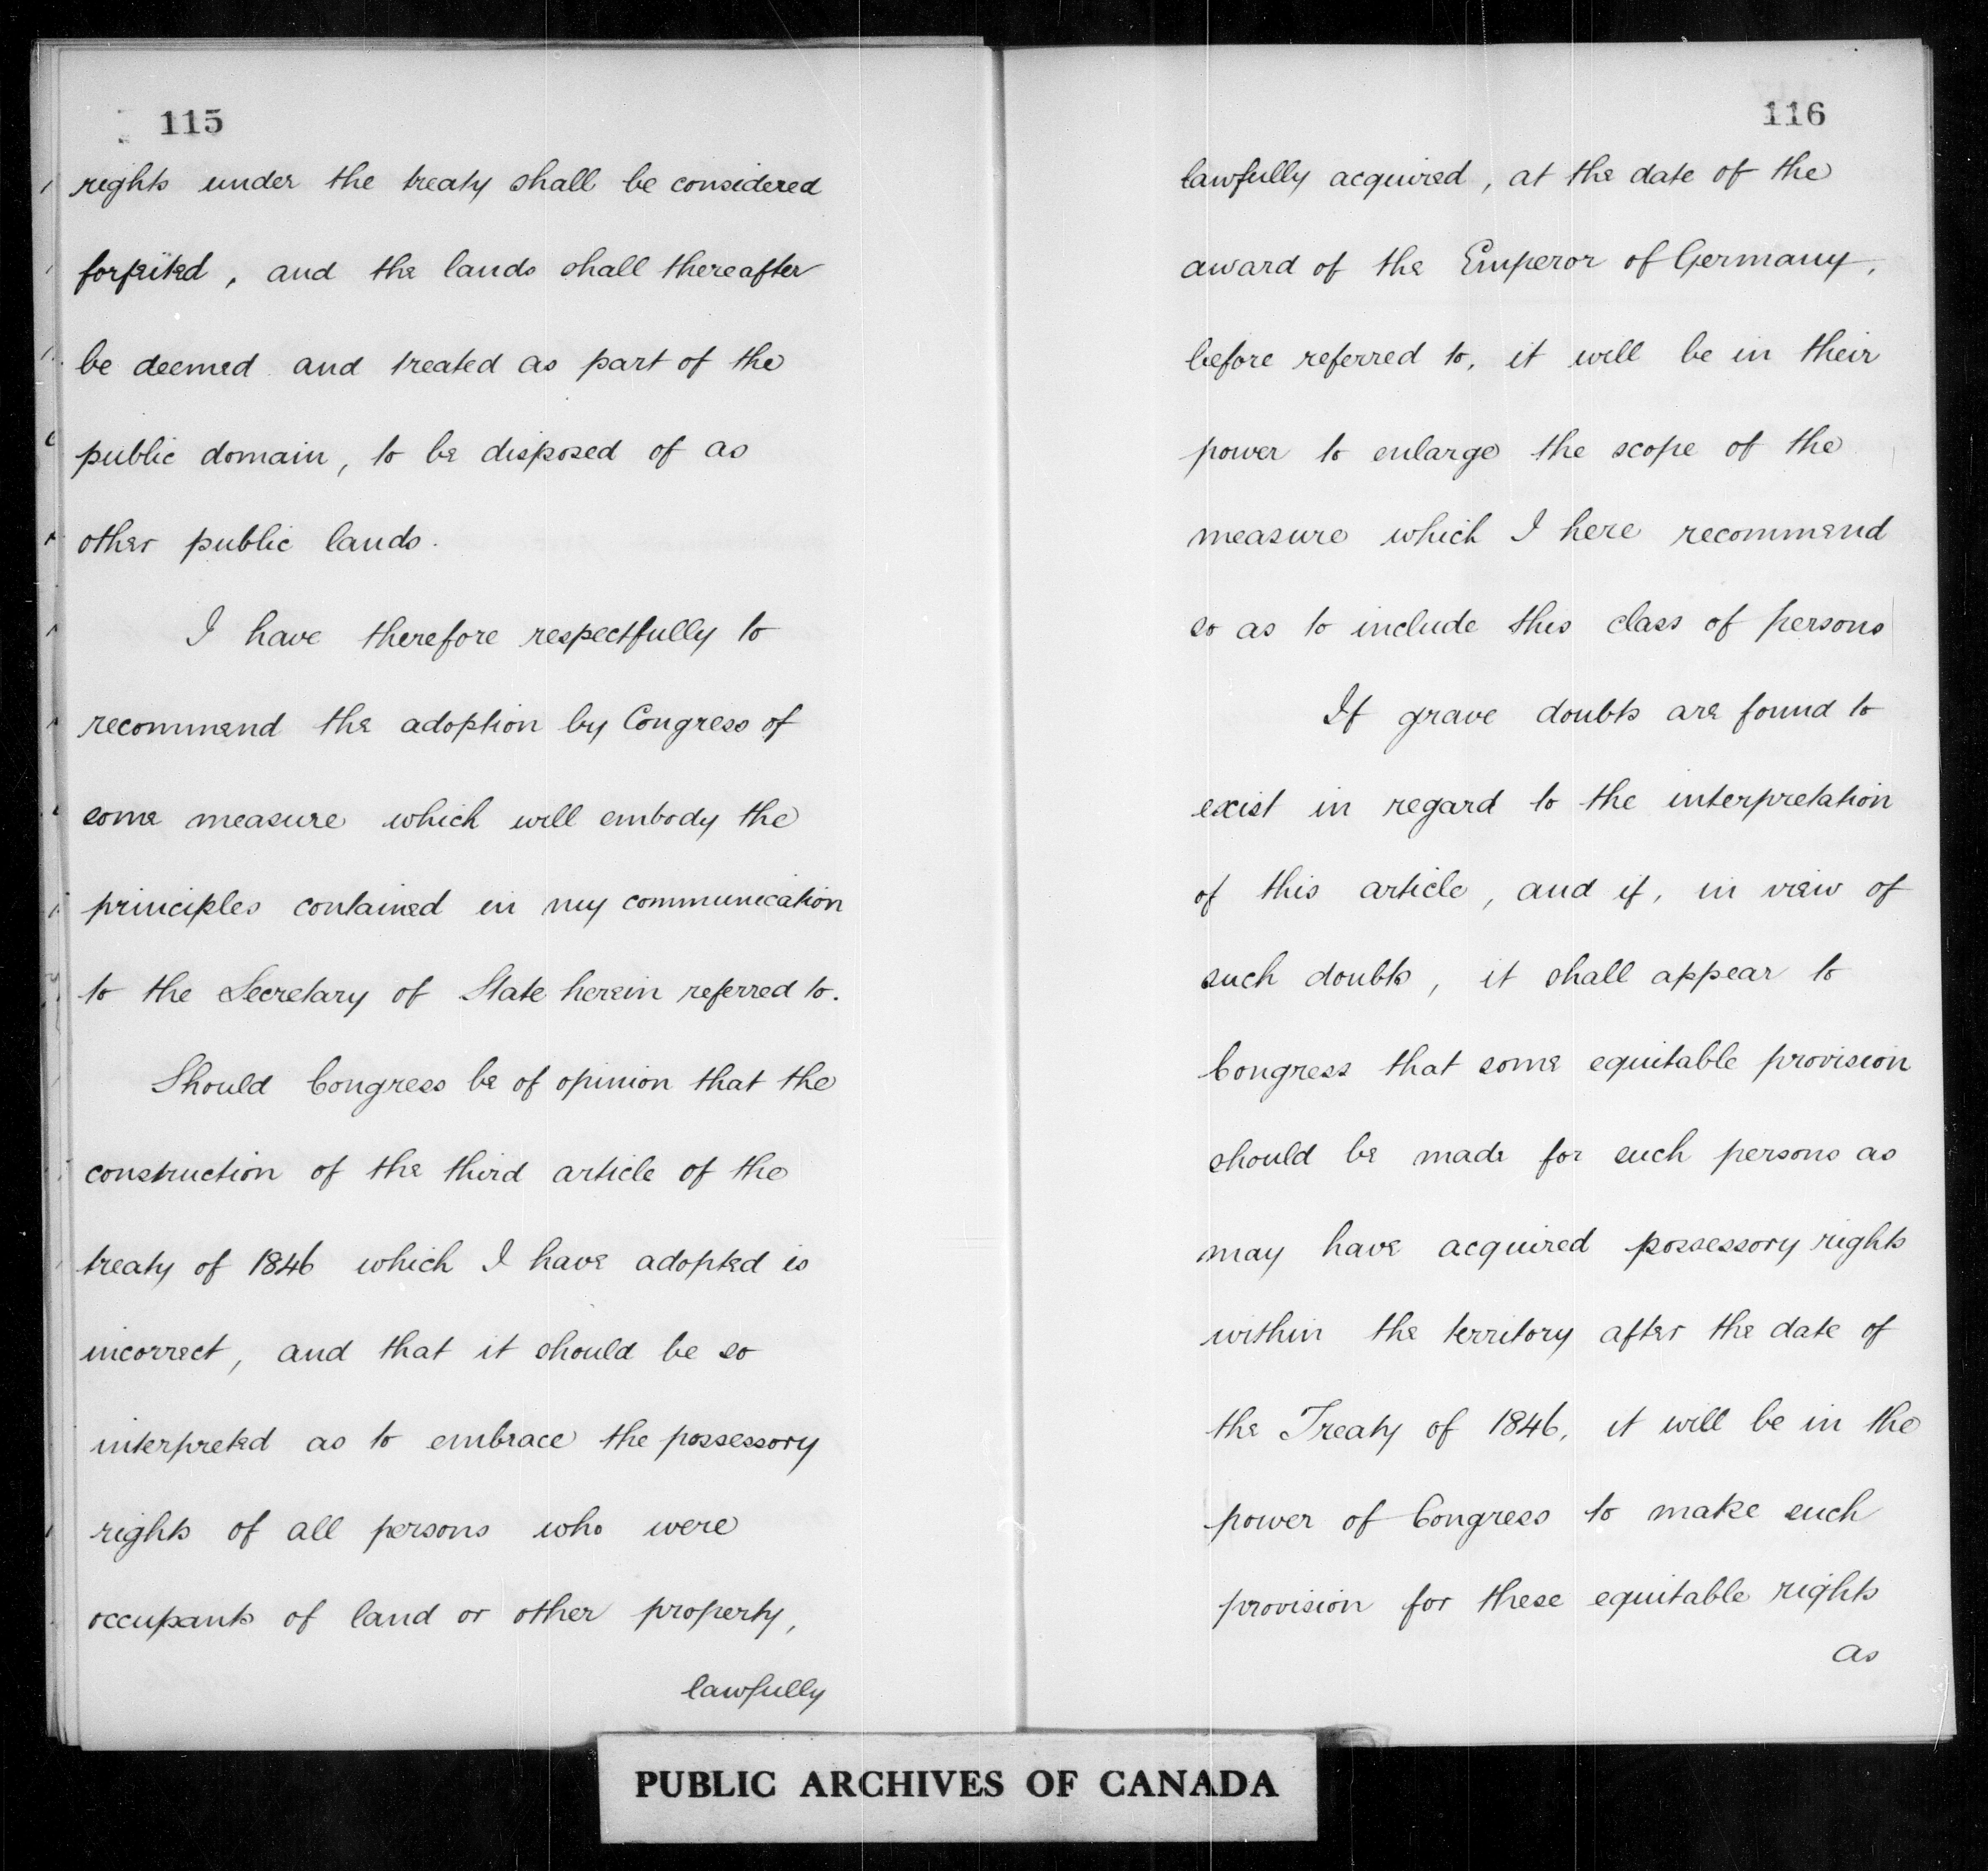 115
rights under the treaty shall be considered
forfeited, and the lands shall thereafter
be deemed and treated as part of the
public domain, to be disposed of as
other public lands.
I have therefore respectfully to
recommend the adoption by Congress of
some measure which will embody the
principles contained in my communication
to the Secretary of State herein referred to.
Should Congress be of opinion that the
construction of the third article of the
treaty of 1846 which I have adopted is
incorrect, and that it should be so
interpreted as to embrace the possessory
rights of all persons who were
occupants of land or other property,
lawfully
116
lawfully acquired, at the date of the
award of the Emperor of Germany,
before referred to, it will be in their
power to enlarge the scope of the
measure which I here recommend
so as to include this class of persons
If grave doubts are found to
exist in regard to the interpretation
of this article, and if, in view of
such doubts, it shall appear to
Congress that some equitable provision
should be made for such persons as
may have acquired possessory rights
within the territory after the date of
the Treaty of 1846, it will be in the
power of Congress to make such
provision for these equitable rights
as
PUBLIC ARCHIVES OF CANADA